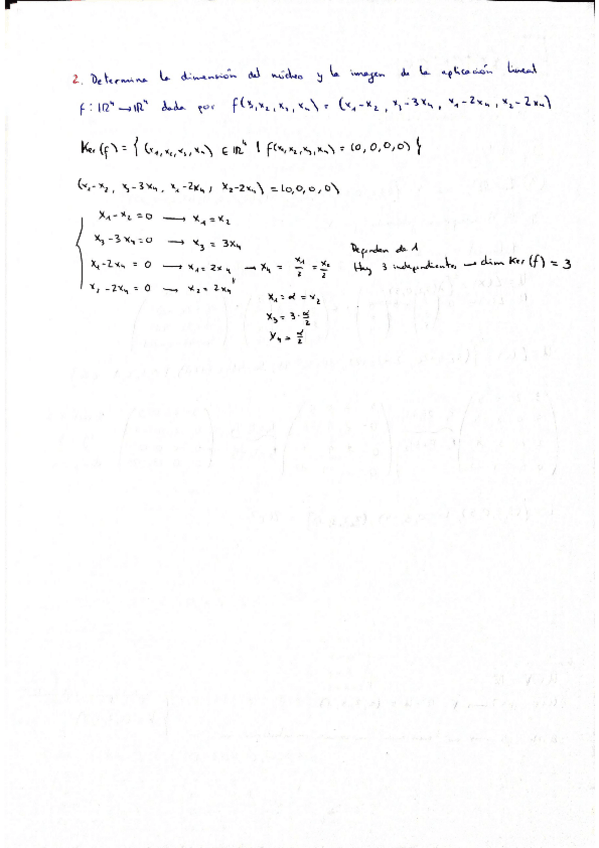 2. Determina la dimensión del núcleo y la imagen de la aplicación lineal
f: ℝ⁴ → ℝ⁴ dada por f(x₁,x₂,x₃,x₄) = (x₁-x₂, x₃-3x₄, x₁-2x₄, x₂-2x₄)
Ker(f) = { (x₁,x₂,x₃,x₄) ∈ ℝ⁴ | f(x₁,x₂,x₃,x₄) = (0,0,0,0) }
(x₁-x₂, x₃-3x₄, x₁-2x₄, x₂-2x₄) = (0,0,0,0)
x₁-x₂ = 0 → x₁ = x₂
x₃-3x₄ = 0 → x₃ = 3x₄
x₁-2x₄ = 0 → x₁ = 2x₄ → x₄ = x₁/2 = x₂/2
x₂-2x₄ = 0 → x₂ = 2x₄
x₁ = α = x₂
x₃ = 3·α/2
x₄ = α/2
Dependen de 1
Hay 3 independientes → dim Ker(f) = 3